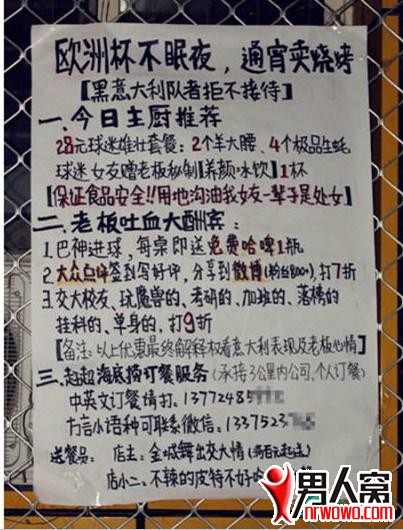 欧洲杯不眠夜，通宵卖烧烤
【黑意大利队者拒不接待】
一.今日主厨推荐
28元球迷雄壮套餐：2个羊大腰、4个极品生蚝
球迷女友赠老板秘制【养颜冰饮】1杯
【保证食品安全!!用地沟油我女友一辈子是处女】
二.老板吐血大酬宾：
1.巴神进球，每桌即送免费哈啤1瓶
2.大众点评签到写好评，分享到微博（粉台800+）打7折
3.交大校友、玩魔兽的、考研的、加班的、落榜的
挂科的、单身的、打9折
【备注：以上优惠最终解释权看意大利表现及老板心情】
三.超越海底捞订餐服务（承接3公里内公司、个人订餐）
中英文订餐请打.13772485
方言小语种可联系微信.1337523
送餐员： 店主：全城舞出交大情（两百元起送）
店小二：不辣的皮特不好
男人窝
nrwowo.com